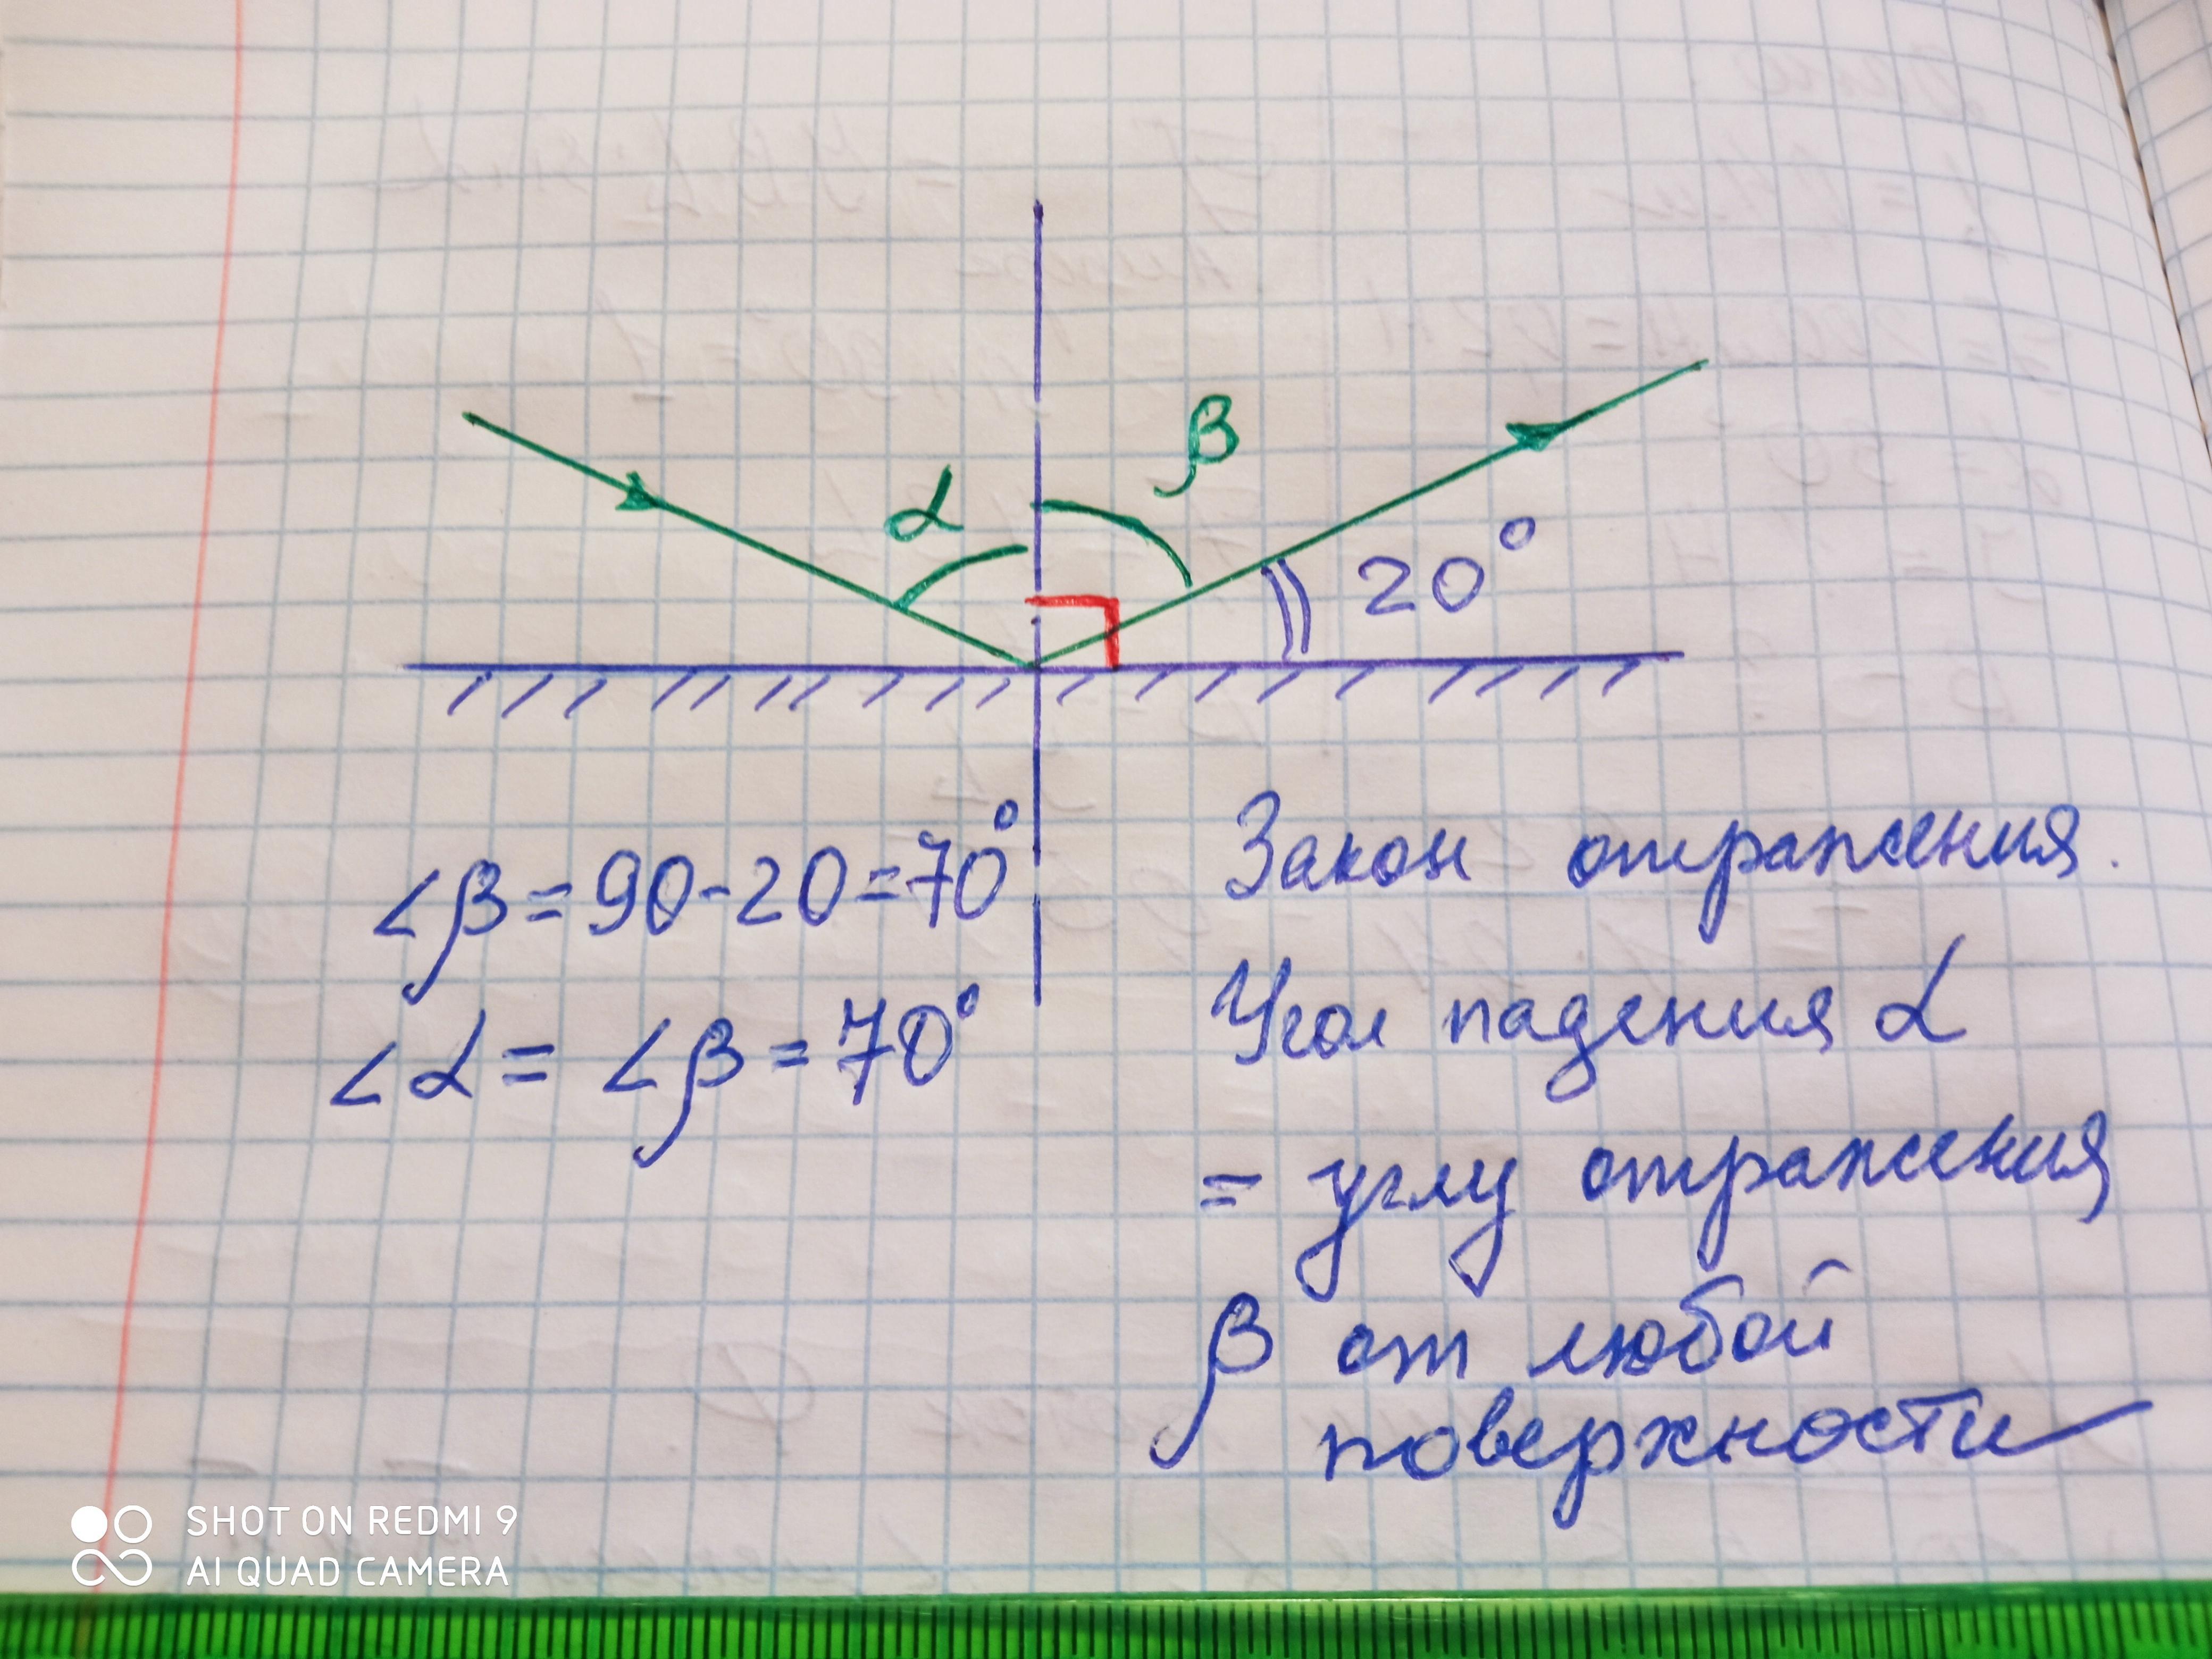 α
β
20°
∠β = 90 - 20 = 70°
∠α = ∠β = 70°
Закон отражения.
Угол падения α
= углу отражения
β от любой
поверхности
SHOT ON REDMI 9
AI QUAD CAMERA